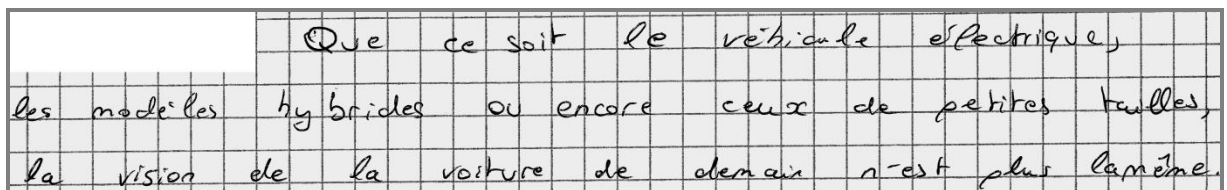 Que ce soit le véhicule électrique,
les modèles hybrides ou encore ceux de petites tailles,
la vision de la voiture de demain n'est plus la même.